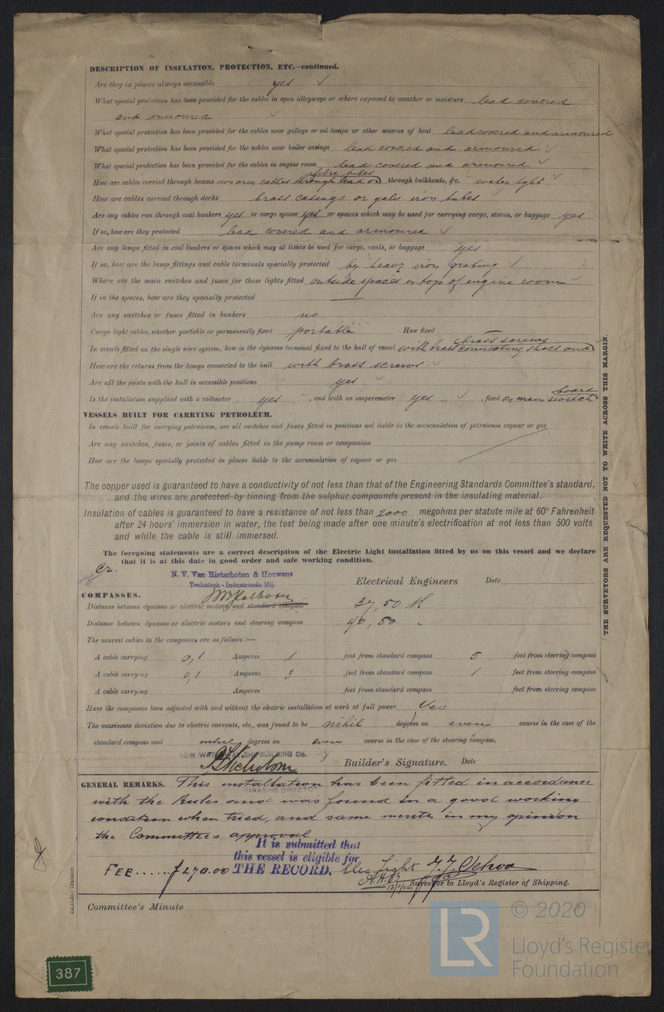 DESCRIPTION OF INSULATION, PROTECTION, ETC.—continued.
Are they in places always accessible yes ✓
What special protection has been provided for the cables in open alleyways or where exposed to weather or moisture lead covered
and armoured ✓
What special protection has been provided for the cables near galleys or oil lamps or other sources of heat lead covered and armoured
What special protection has been provided for the cables near boiler casings lead covered and armoured ✓
What special protection has been provided for the cables in engine room lead covered and armoured ✓
fibre tubes
How are cables carried through beams cables through lead or through bulkheads, &c. water tight ✓
How are cables carried through decks brass casings or galv iron tubes ✓
Are any cables run through coal bunkers yes or cargo spaces yes or spaces which may be used for carrying cargo, stores, or baggage yes
If so, how are they protected lead covered and armoured ✓
Are any lamps fitted in coal bunkers or spaces which may at times be used for cargo, coals, or baggage yes
If so, how are the lamp fittings and cable terminals specially protected by heavy iron grating ✓
Where are the main switches and fuses for these lights fitted outside spaces in top of engine room
If in the spaces, how are they specially protected —
Are any switches or fuses fitted in bunkers no
Cargo light cables, whether portable or permanently fixed portable How fixed —
brass screws
In vessels fitted on the single wire system, how is the dynamo terminal fixed to the hull of vessel with brass connecting shoes and
How are the returns from the lamps connected to the hull with brass screws ✓
Are all the joints with the hull in accessible positions yes ✓
board
Is the installation supplied with a voltmeter yes ✓, and with an amperemeter yes ✓, fixed on main switch
VESSELS BUILT FOR CARRYING PETROLEUM.
In vessels built for carrying petroleum, are all switches and fuses fitted in positions not liable to the accumulation of petroleum vapour or gas
Are any switches, fuses, or joints of cables fitted in the pump room or companion
How are the lamps specially protected in places liable to the accumulation of vapour or gas
The copper used is guaranteed to have a conductivity of not less than that of the Engineering Standards Committee's standard,
and the wires are protected by tinning from the sulphur compounds present in the insulating material.
Insulation of cables is guaranteed to have a resistance of not less than 2000 megohms per statute mile at 60° Fahrenheit
after 24 hours' immersion in water, the test being made after one minute's electrification at not less than 500 volts
and while the cable is still immersed.
The foregoing statements are a correct description of the Electric Light installation fitted by us on this vessel and we declare
that it is at this date in good order and safe working condition.
N. V. Van Rietschoten & Houwens
Technisch-Industrieele Mij.
Electrical Engineers Date
COMPASSES.
Distance between dynamo or electric motors and standard compass 37,50 M
Distance between dynamo or electric motors and steering compass 46,50 "
The nearest cables to the compasses are as follows:—
A cable carrying 0,1 Amperes 1 feet from standard compass 5 feet from steering compass
A cable carrying 0,1 Amperes 3 feet from standard compass 1 feet from steering compass
A cable carrying Amperes feet from standard compass feet from steering compass
Have the compasses been adjusted with and without the electric installation at work at full power yes
The maximum deviation due to electric currents, etc., was found to be nihil degrees on even course in the case of the
standard compass and nihil degrees on even course in the case of the steering compass.
BUILDING Co.
MANAGING DIRECTOR
Builder's Signature. Date
GENERAL REMARKS. This installation has been fitted in accordance
with the Rules and was found in a good working
condition when tried, and same merits in my opinion
the Committee's approval
It is submitted that
this vessel is eligible for
THE RECORD. Elec Light
FEE......ƒ270.00
Surveyor to Lloyd's Register of Shipping.
Committee's Minute
THE SURVEYORS ARE REQUESTED NOT TO WRITE ACROSS THIS MARGIN.
387
LR
© 2020
Lloyd's Register
Foundation